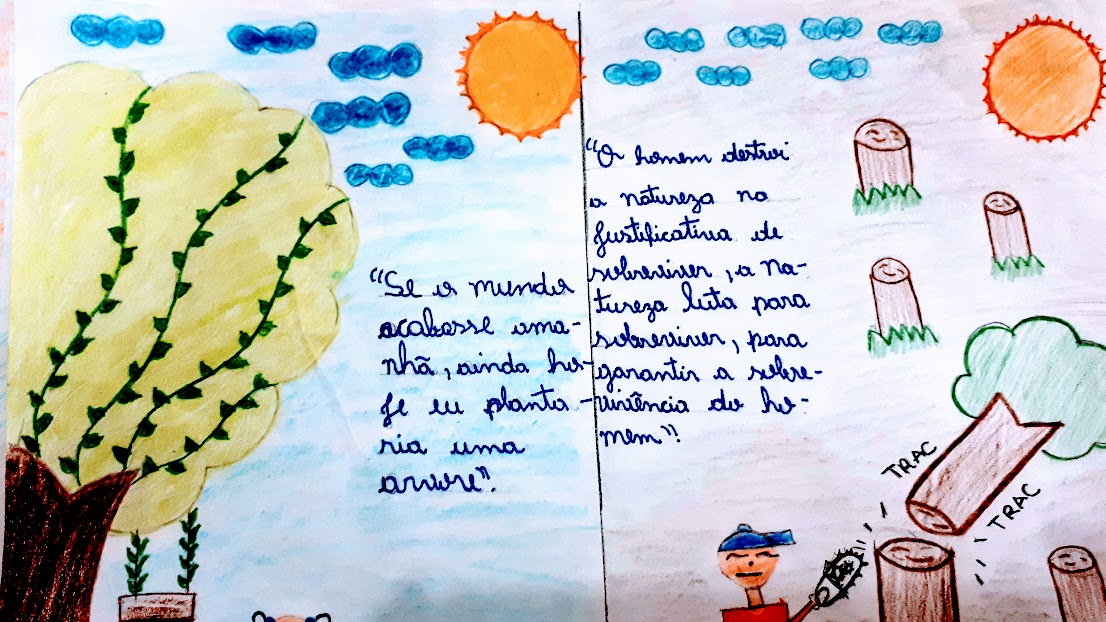 "Se o mundo
acabasse ama-
nhã, ainda ho-
je eu planta-
ria uma
árvore".
"O homem destroi
a natureza na
justificativa de
sobreviver, a na-
tureza luta para
sobreviver, para
garantir a sobre-
vivência do ho-
mem"!
TRAC
TRAC